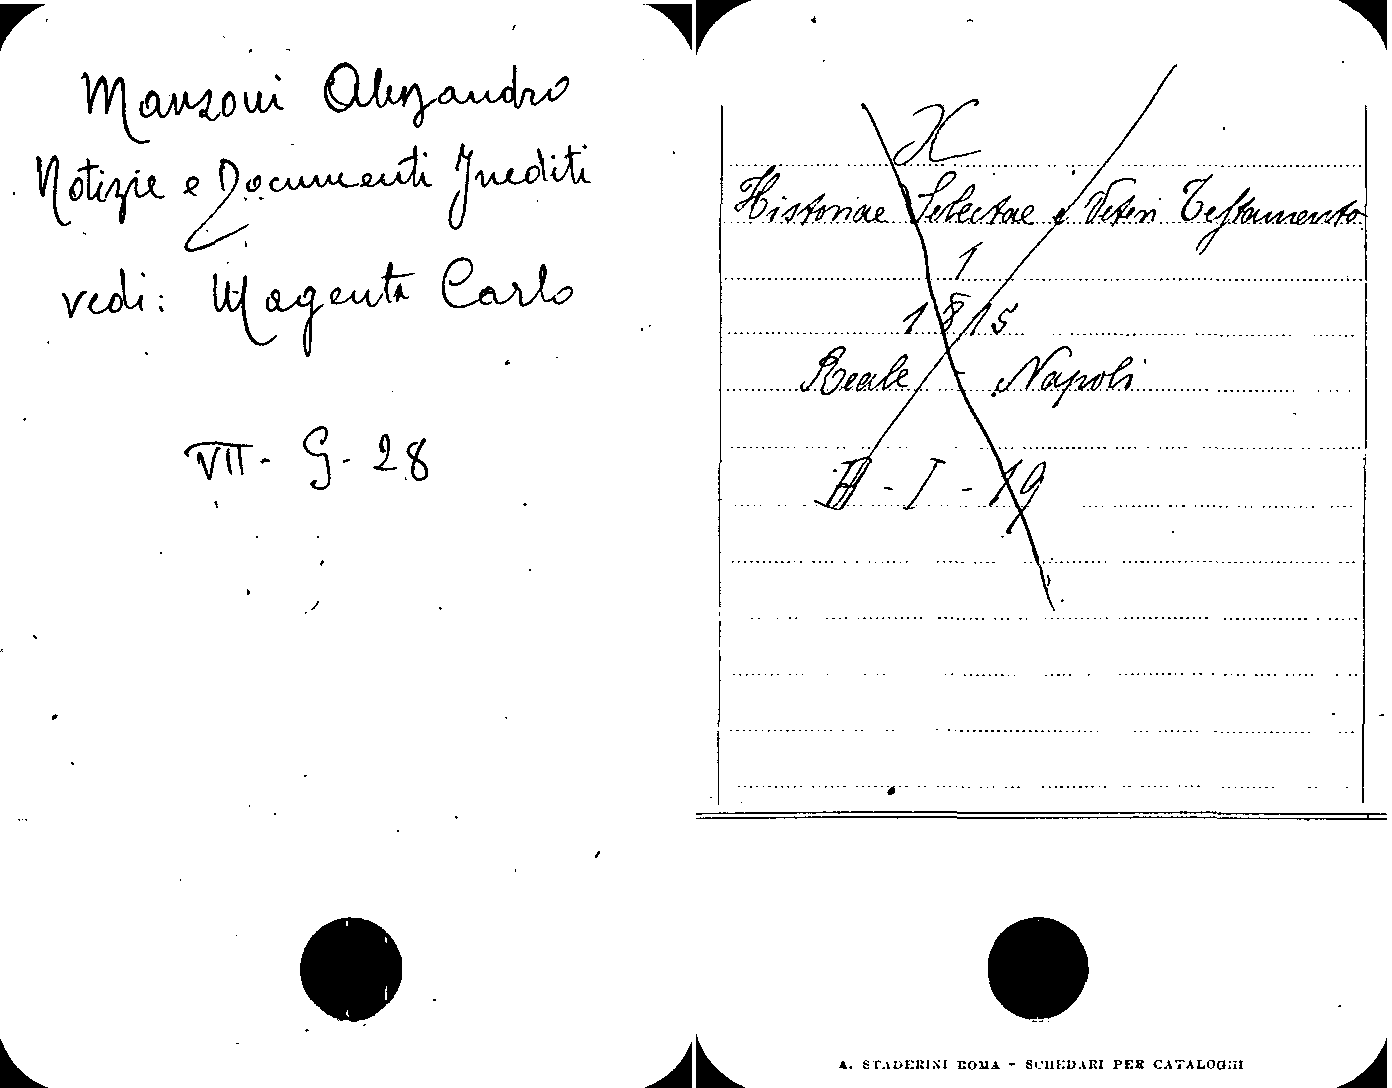 Manzoni Alessandro
Notizie e Documenti Inediti
vedi: Magenta Carlo
VII - G - 28
X
Historiae Selectae e Veteri Testamento
1
1815
Reale - Napoli
- I - 19
A. STADERINI ROMA - SCHEDARI PER CATALOGHI